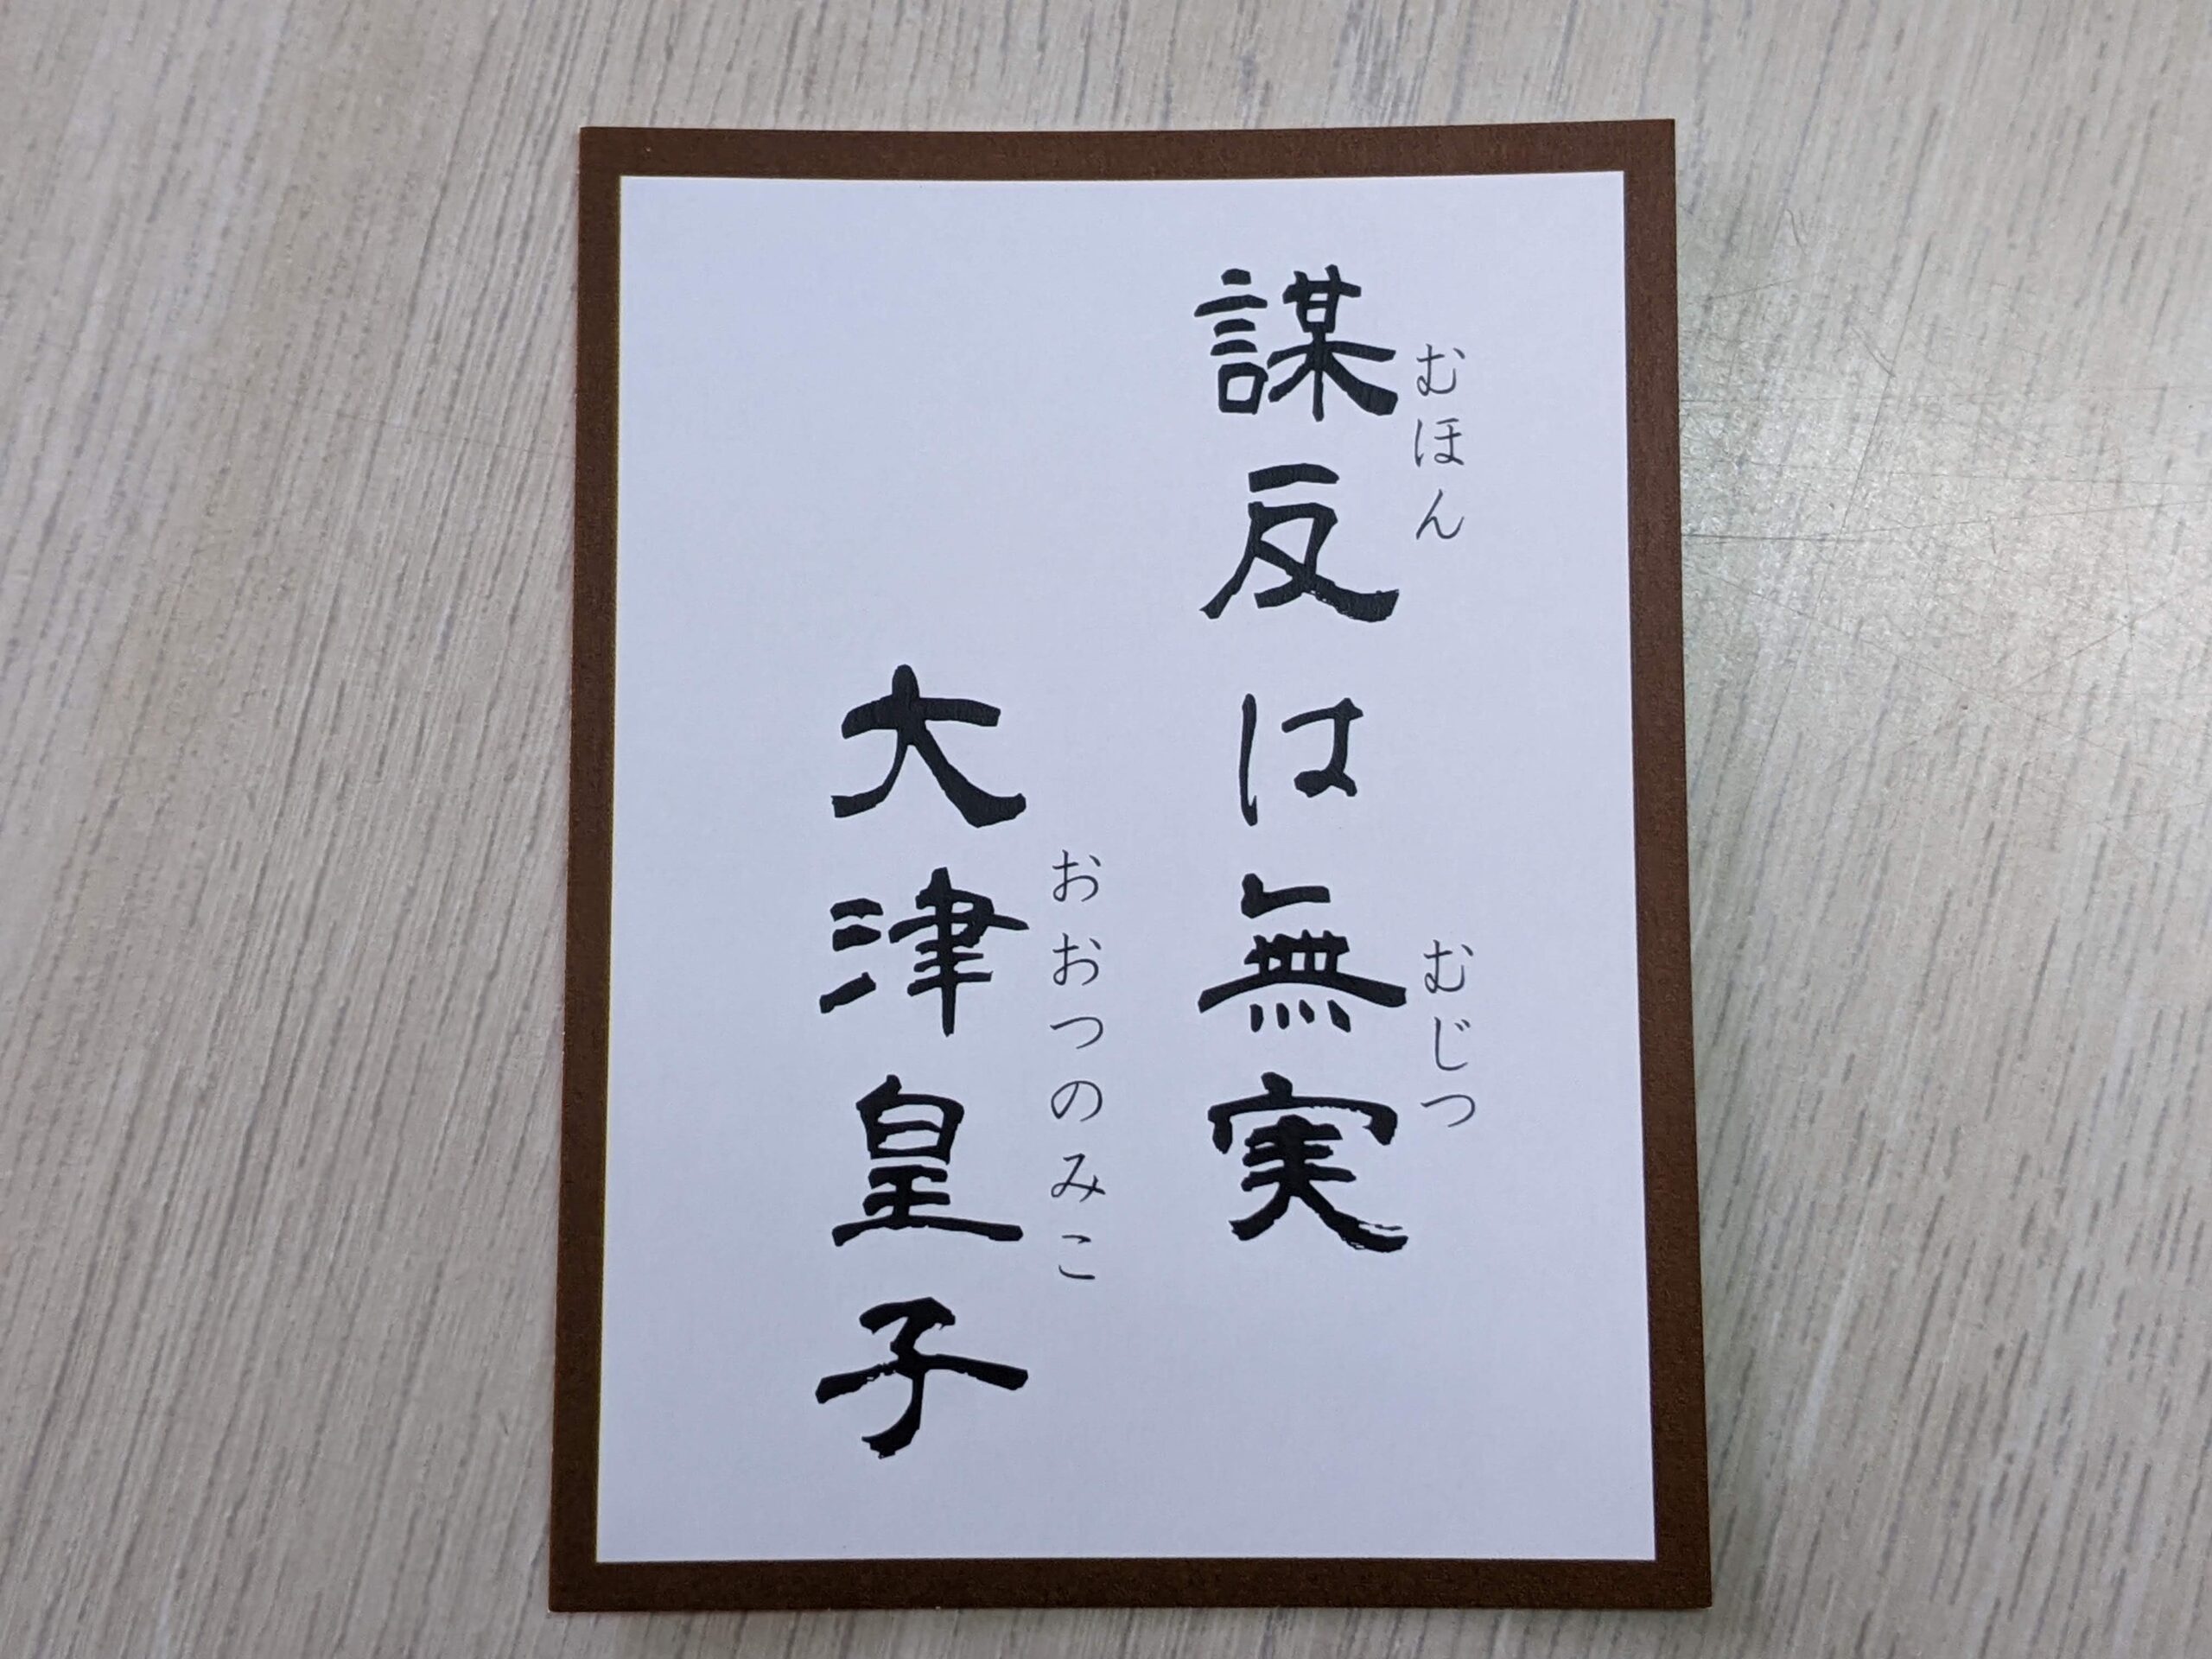 謀反は無実
むほん
むじつ
大津皇子
おおつのみこ